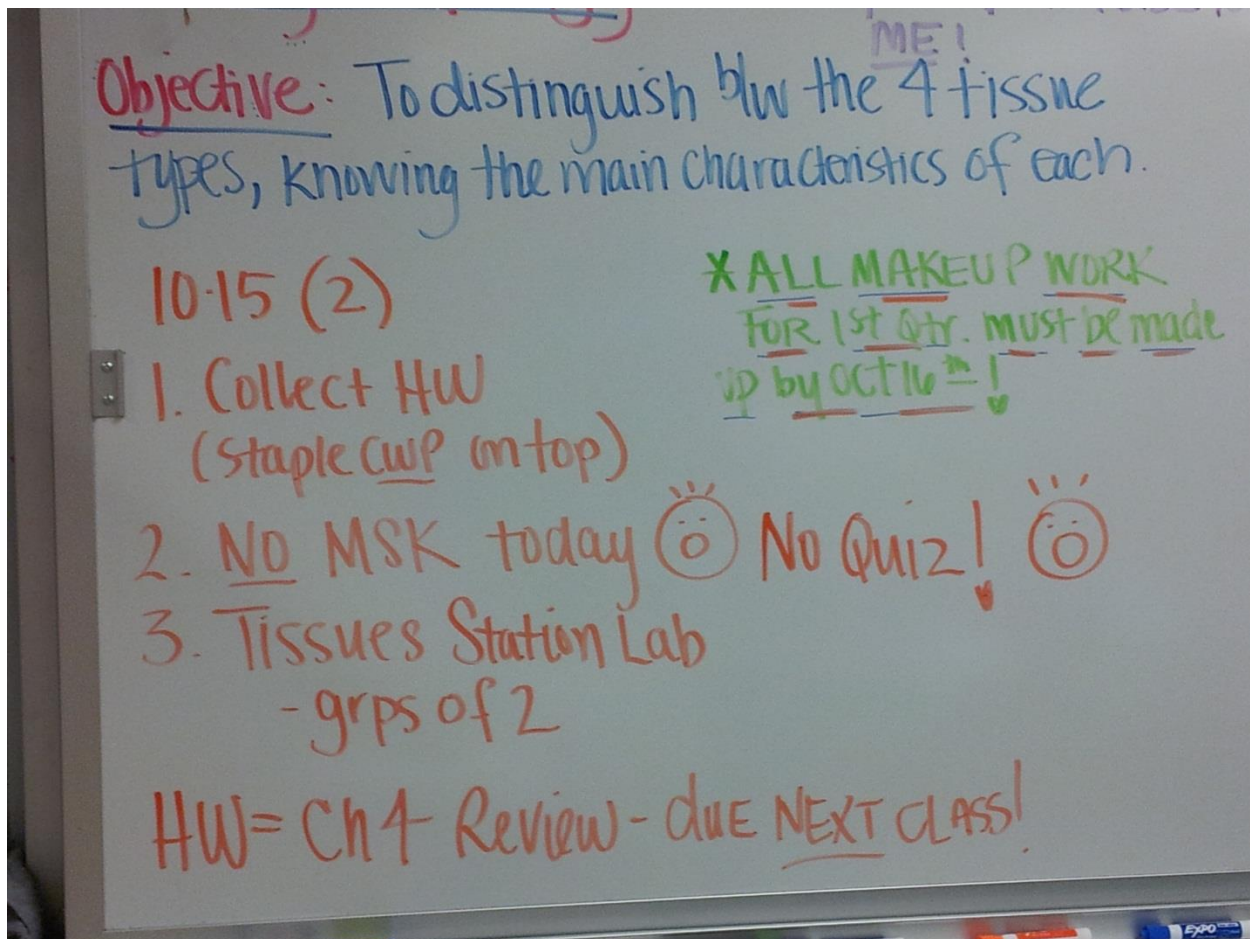 ME!
Objective: To distinguish b/w the 4 tissue
types, knowing the main characteristics of each.
10.15 (2)
1. Collect HW
(Staple CWP on top)
2. NO MSK today No Quiz!
3. Tissues Station Lab
- grps of 2
HW= Ch 4 Review - due NEXT CLASS!
* ALL MAKEUP WORK
FOR 1st Qtr. must be made
up by OCT 16th!
EXPO